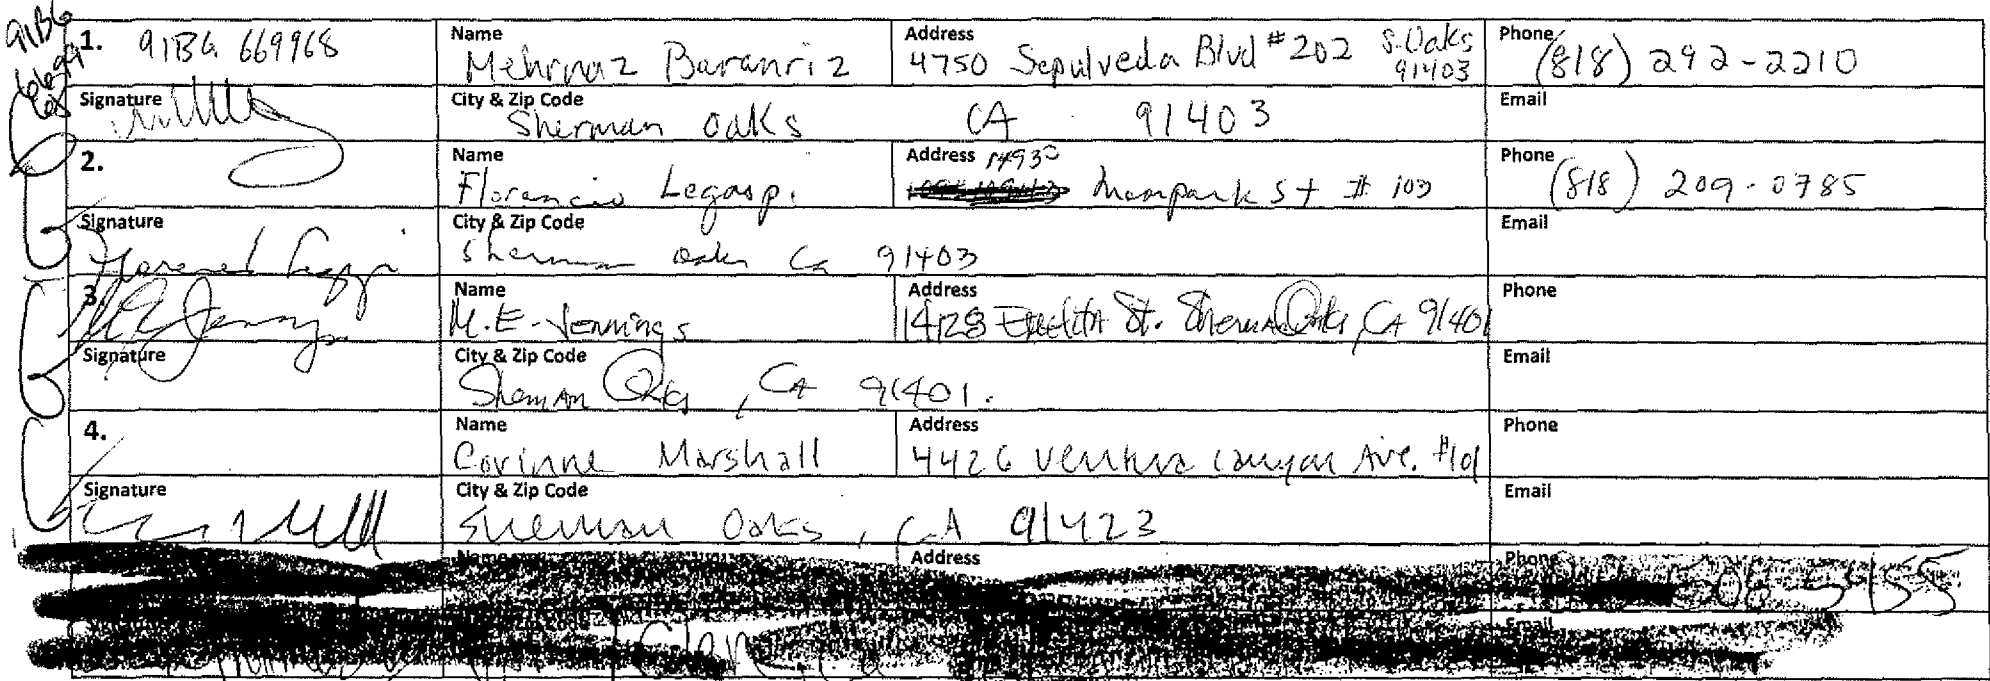 1. 91BG 669968 Name Mehrnaz Baranriz Address 4750 Sepulveda Blvd #202 S. Oaks 91403 Phone (818) 292-2210
Signature City & Zip Code Sherman Oaks CA 91403 Email
2. Name Florencio Legaspi Address 14930 St # 103 Phone (818) 209-0785
Signature City & Zip Code Sherman Oaks Ca 91403 Email
3. Name M.E. Jennings Address St. Sherman Oaks, CA 91401 Phone
Signature City & Zip Code Sherman Oaks, CA 91401. Email
4. Name Corinne Marshall Address 4426 Ventura Canyon Ave. #101 Phone
Signature City & Zip Code Sherman Oaks, CA 91423 Email
Name Address Phone
Email